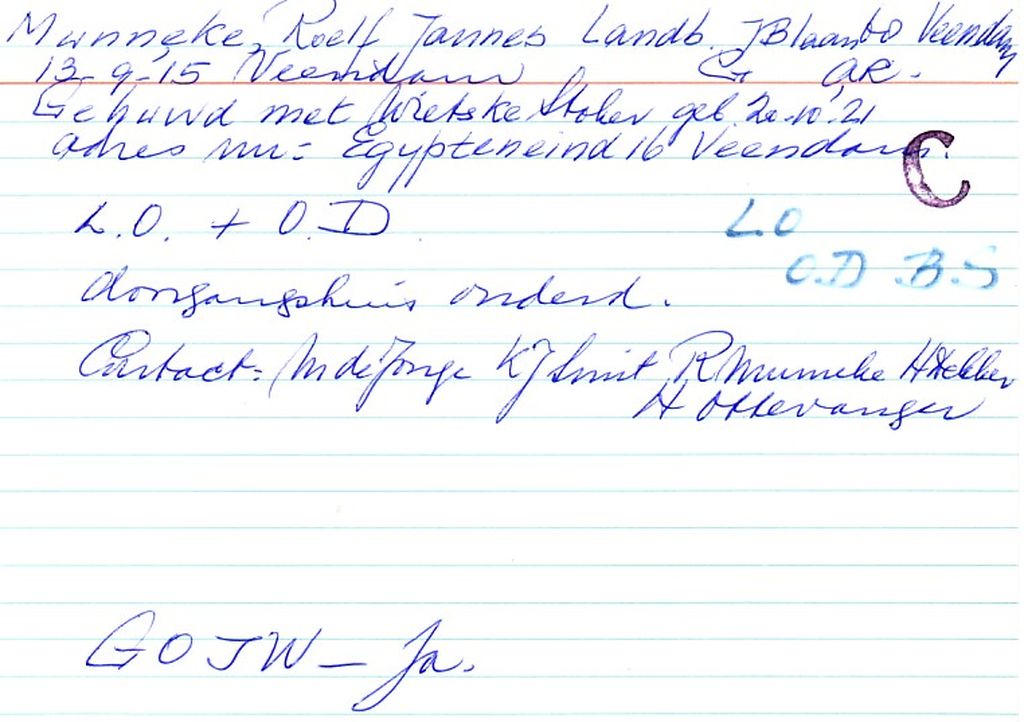 Munneke, Roelf Jannes Landb. JBlaan 60 Veendam
13-9-15 Veendam G AR.
Gehuwd met Wietske Stoker geb. 20.10.21
adres nu = Egypteneind 16 Veendam.
C
L.O. + O.D. LO
O.D .B.S
doorgangshuis onderd.
Contact = M de Jonge KJ Smit R Munneke H Hekker
H Ottevanger
G O J W - Ja.